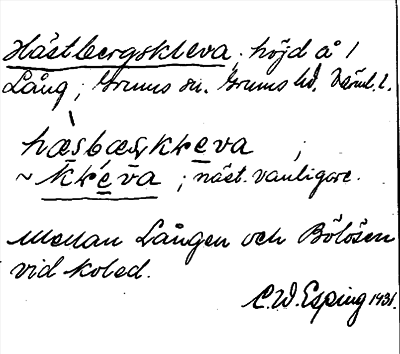 Hästbergskleva; höjd å 1
Lång; Grums sn. Grums hd. Värml. l.
hæsbæʂkkleva ;
~ kkleva ; näst. vanligare.
Mellan Lången och Bölösen
vid Kolad.
C.W. Esping 1931.